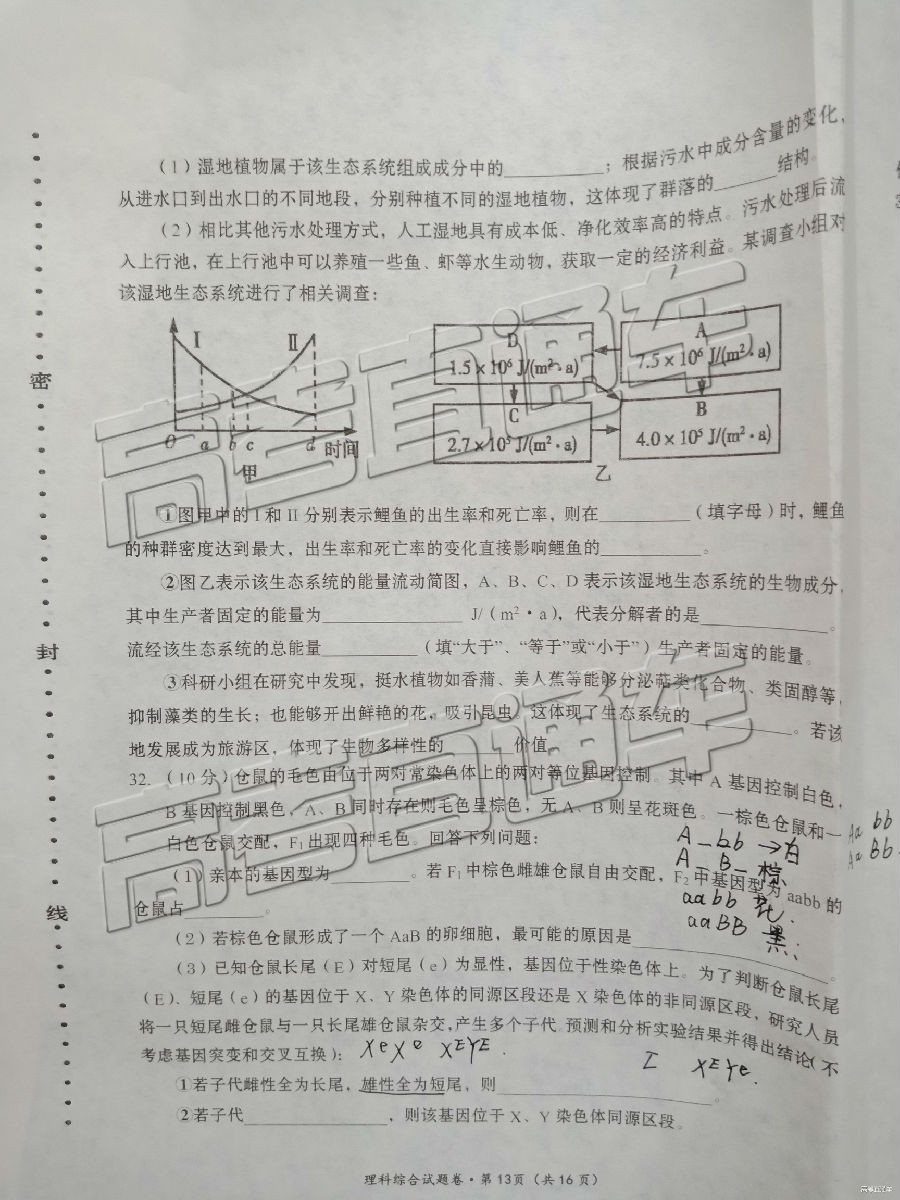 (1)湿地植物属于该生态系统组成成分中的__________;根据污水中成分含量的变化,
从进水口到出水口的不同地段,分别种植不同的湿地植物,这体现了群落的______结构。
(2)相比其他污水处理方式,人工湿地具有成本低、净化效率高的特点。污水处理后流
入上行池,在上行池中可以养殖一些鱼、虾等水生动物,获取一定的经济利益。某调查小组对
该湿地生态系统进行了相关调查:
Ⅰ Ⅱ
O a b c d 时间
甲
D
1.5×10⁶ J/(m²·a)
A
7.5×10⁶ J/(m²·a)
C
2.7×10⁵ J/(m²·a)
B
4.0×10⁵ J/(m²·a)
乙
①图甲中的Ⅰ和Ⅱ分别表示鲤鱼的出生率和死亡率,则在_________(填字母)时,鲤鱼
的种群密度达到最大,出生率和死亡率的变化直接影响鲤鱼的__________。
②图乙表示该生态系统的能量流动简图,A、B、C、D表示该湿地生态系统的生物成分,
其中生产者固定的能量为______________ J/(m²·a),代表分解者的是_____________。
流经该生态系统的总能量__________(填“大于”、“等于”或“小于”)生产者固定的能量。
③科研小组在研究中发现,挺水植物如香蒲、美人蕉等能够分泌萜类化合物、类固醇等,
抑制藻类的生长;也能够开出鲜艳的花,吸引昆虫,这体现了生态系统的__________。若该
地发展成为旅游区,体现了生物多样性的_______价值
32.(10分)仓鼠的毛色由位于两对常染色体上的两对等位基因控制。其中A基因控制白色,
B基因控制黑色,A、B同时存在则毛色呈棕色,无A、B则呈花斑色。一棕色仓鼠和一
白色仓鼠交配,F₁出现四种毛色。回答下列问题:
Aa bb
Aa Bb
A_bb →白
A_B_ 棕
aabb 花.
aaBB 黑
(1)亲本的基因型为________。若F₁中棕色雌雄仓鼠自由交配,F₂中基因型为aabb的
仓鼠占________。
(2)若棕色仓鼠形成了一个AaB的卵细胞,最可能的原因是____________________。
(3)已知仓鼠长尾(E)对短尾(e)为显性,基因位于性染色体上。为了判断仓鼠长尾
(E)、短尾(e)的基因位于X、Y染色体的同源区段还是X染色体的非同源区段,研究人员
将一只短尾雌仓鼠与一只长尾雄仓鼠杂交,产生多个子代。预测和分析实验结果并得出结论(不
考虑基因突变和交叉互换):
XeXe XEYE.
I XEYe.
①若子代雌性全为长尾,雄性全为短尾,则______________________。
②若子代______________,则该基因位于X、Y染色体同源区段。
理科综合试题卷·第13页(共16页)
密
封
线
高考直通车
高考直通车